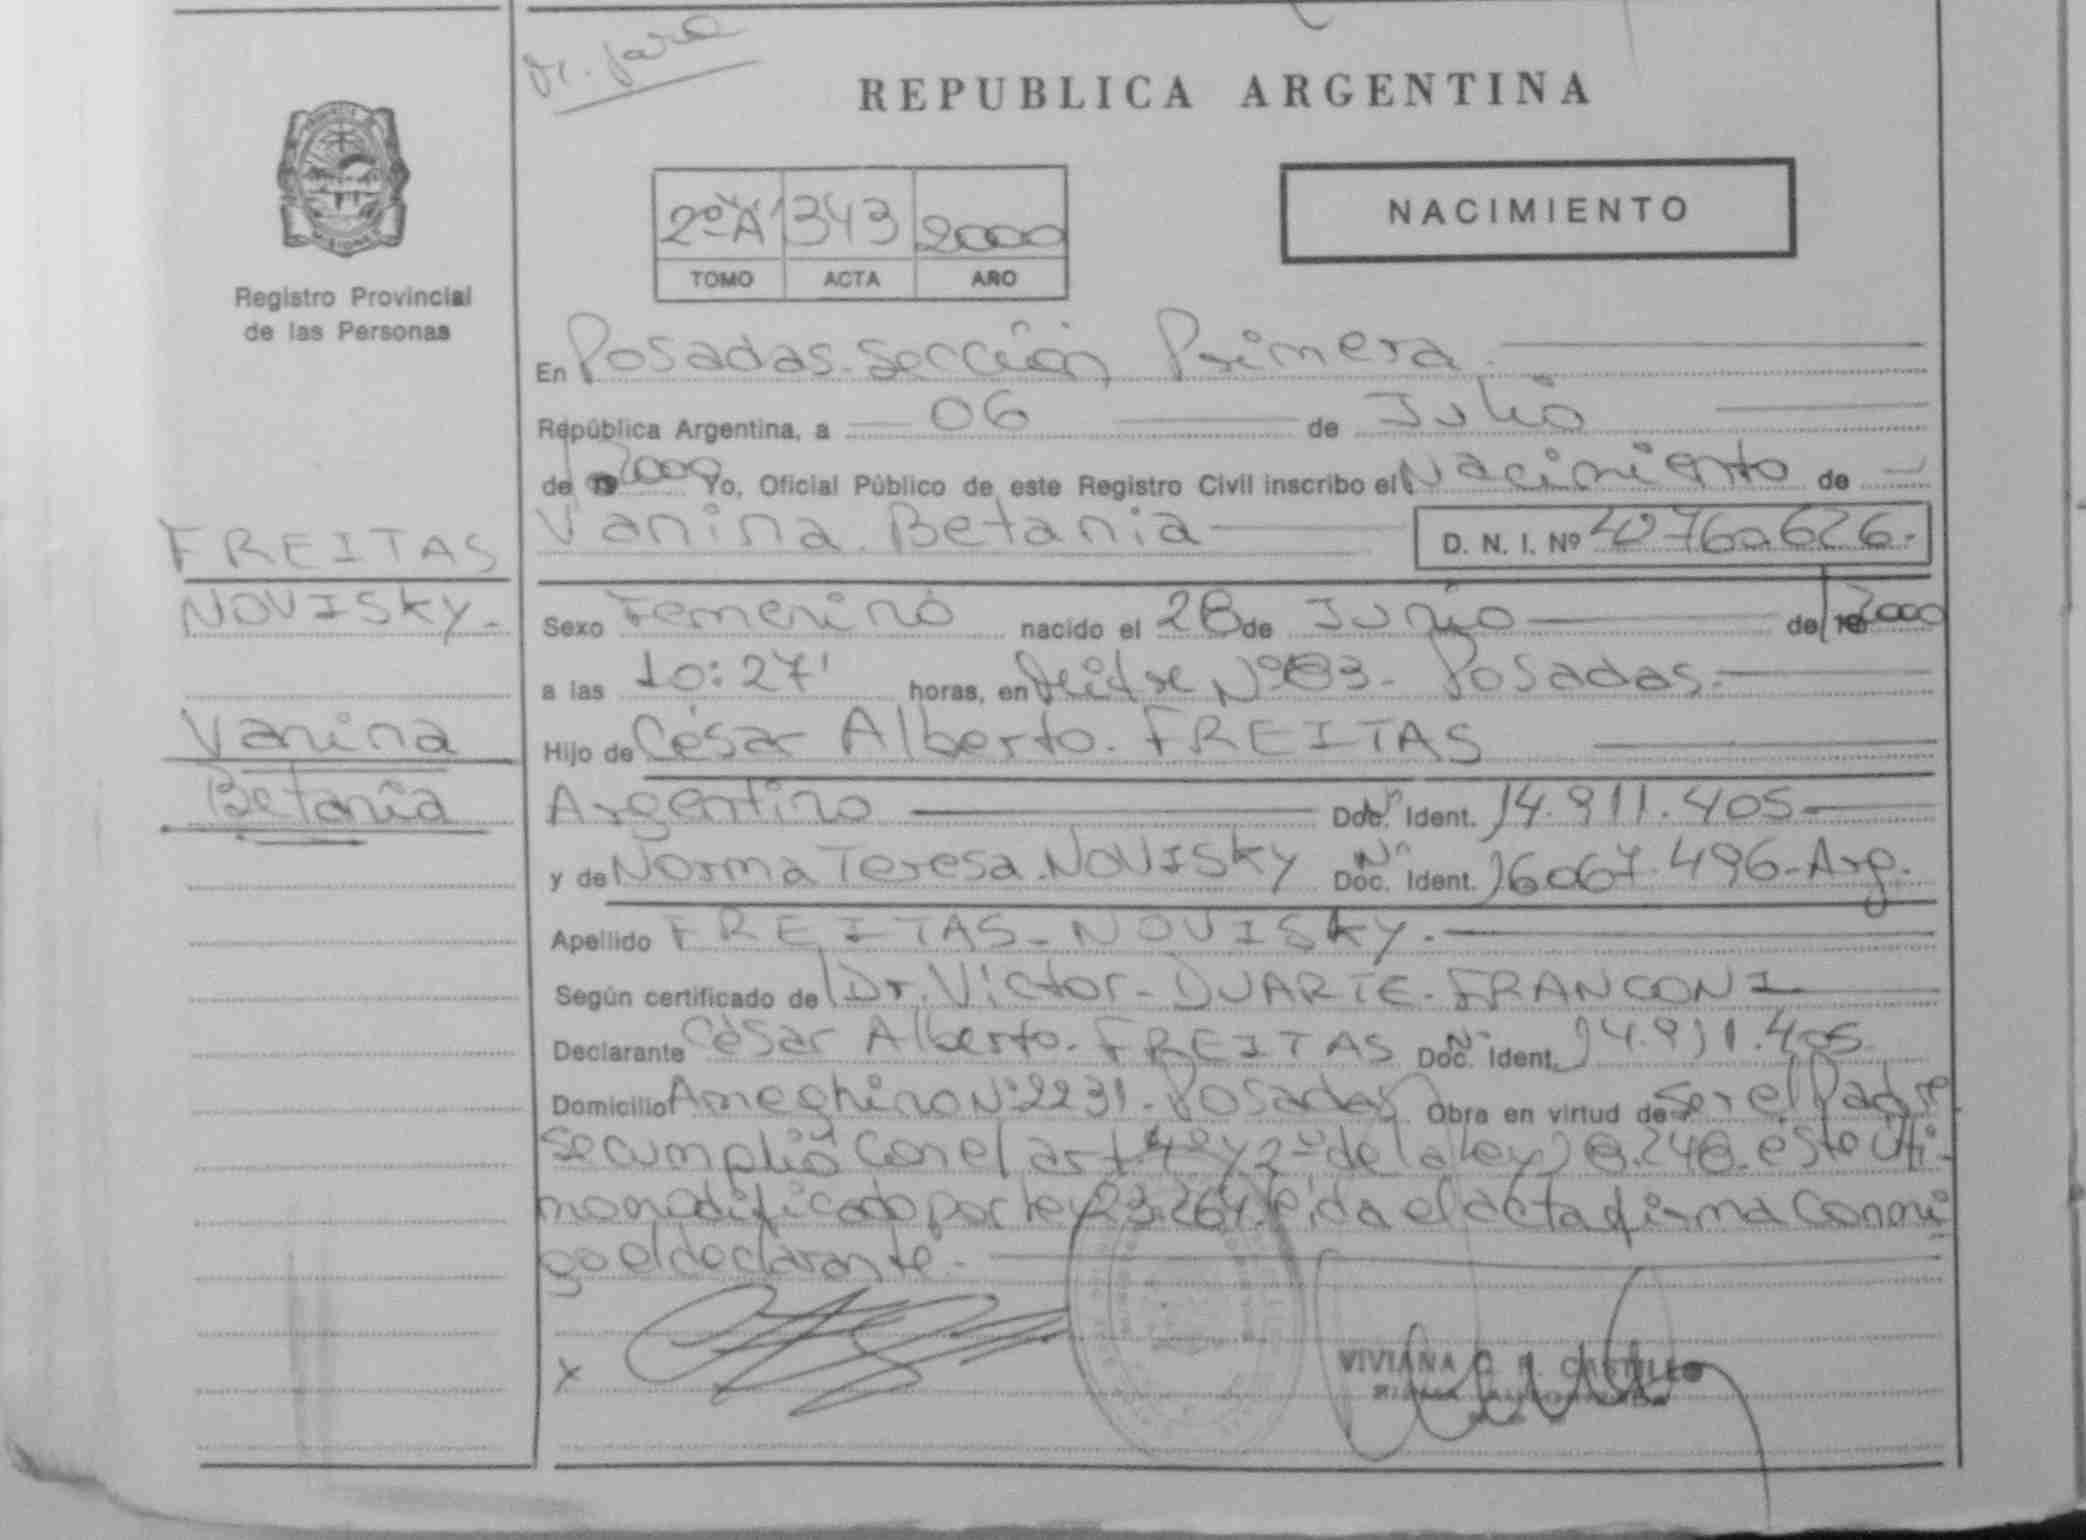 REPUBLICA ARGENTINA
2º "A" 343 2000
TOMO ACTA AÑO
NACIMIENTO
Registro Provincial
de las Personas
En Posadas. Sección Primera.
República Argentina, a 06 de Julio
de 2000 Yo, Oficial Público de este Registro Civil inscribo el Nacimiento de
Vanina Betania D. N. I. Nº 42760.626.
FREITAS
NOVISKY.
Vanina
Betania
Sexo Femenino nacido el 28 de Junio de 2000
a las 10:27' horas, en Nº 83. Posadas.
Hijo de César Alberto. FREITAS
Argentino Nº Doc. Ident. 14.911.405
y de Norma Teresa. NOVISKY Nº Doc. Ident. 16067.496. Arg.
Apellido FREITAS - NOVISKY.
Según certificado de Dr. Victor - DUARTE - FRANCONI
Declarante César Alberto. FREITAS Nº Doc. Ident. 14.911.405
Domicilio Ameghino Nº 2231. Posadas Obra en virtud de ser el Padre
se cumplió con el art 4º y 2º de la ley 18.248. este últi-
mo modificado por ley 23.264. leída el acta firma conmi
go el declarante.
x
VIVIANA CASTILLO